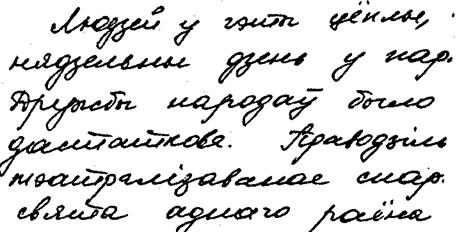 Людзей у гэты цёплы,
нядзельны дзень у пар.
Дружбы народаў было
дастаткова. Праводзілі
тэатралізаванае спар.
свята аднаго раёна